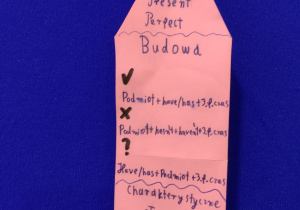 Present
Perfect
Budowa
✓
Podmiot + have/has + 3.f. czas
X
Podmiot + hesn't + haven't + 3.f. czas
?
Have/has + Podmiot + 3.f. czas
Charakterystyczne